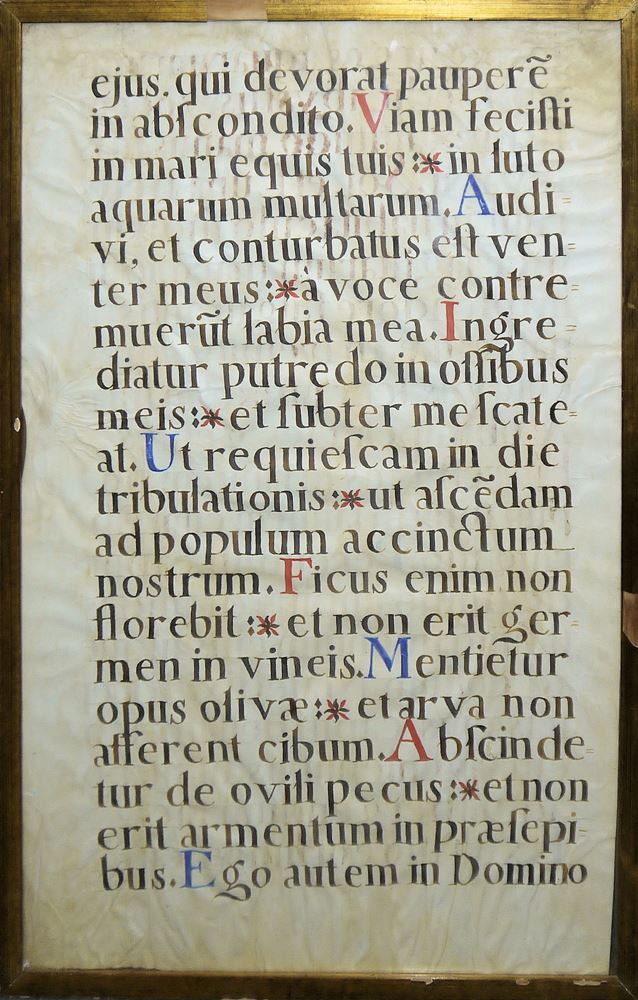 ejus. qui devorat pauperẽ
in abſcondito. Viam feciſti
in mari equis tuis :* in luto
aquarum multarum. Audi-
vi, et conturbatus eſt ven-
ter meus :* à voce contre-
muerũt labia mea. Ingre-
diatur putredo in oſſibus
meis :* et ſubter me ſcate-
at. Ut requieſcam in die
tribulationis :* ut aſcẽdam
ad populum accinctum
nostrum. Ficus enim non
florebit :* et non erit ger-
men in vineis. Mentietur
opus olivæ :* et arva non
afferent cibum. Abſcinde-
tur de ovili pecus :* et non
erit armentum in præſepi-
bus. Ego autem in Domino